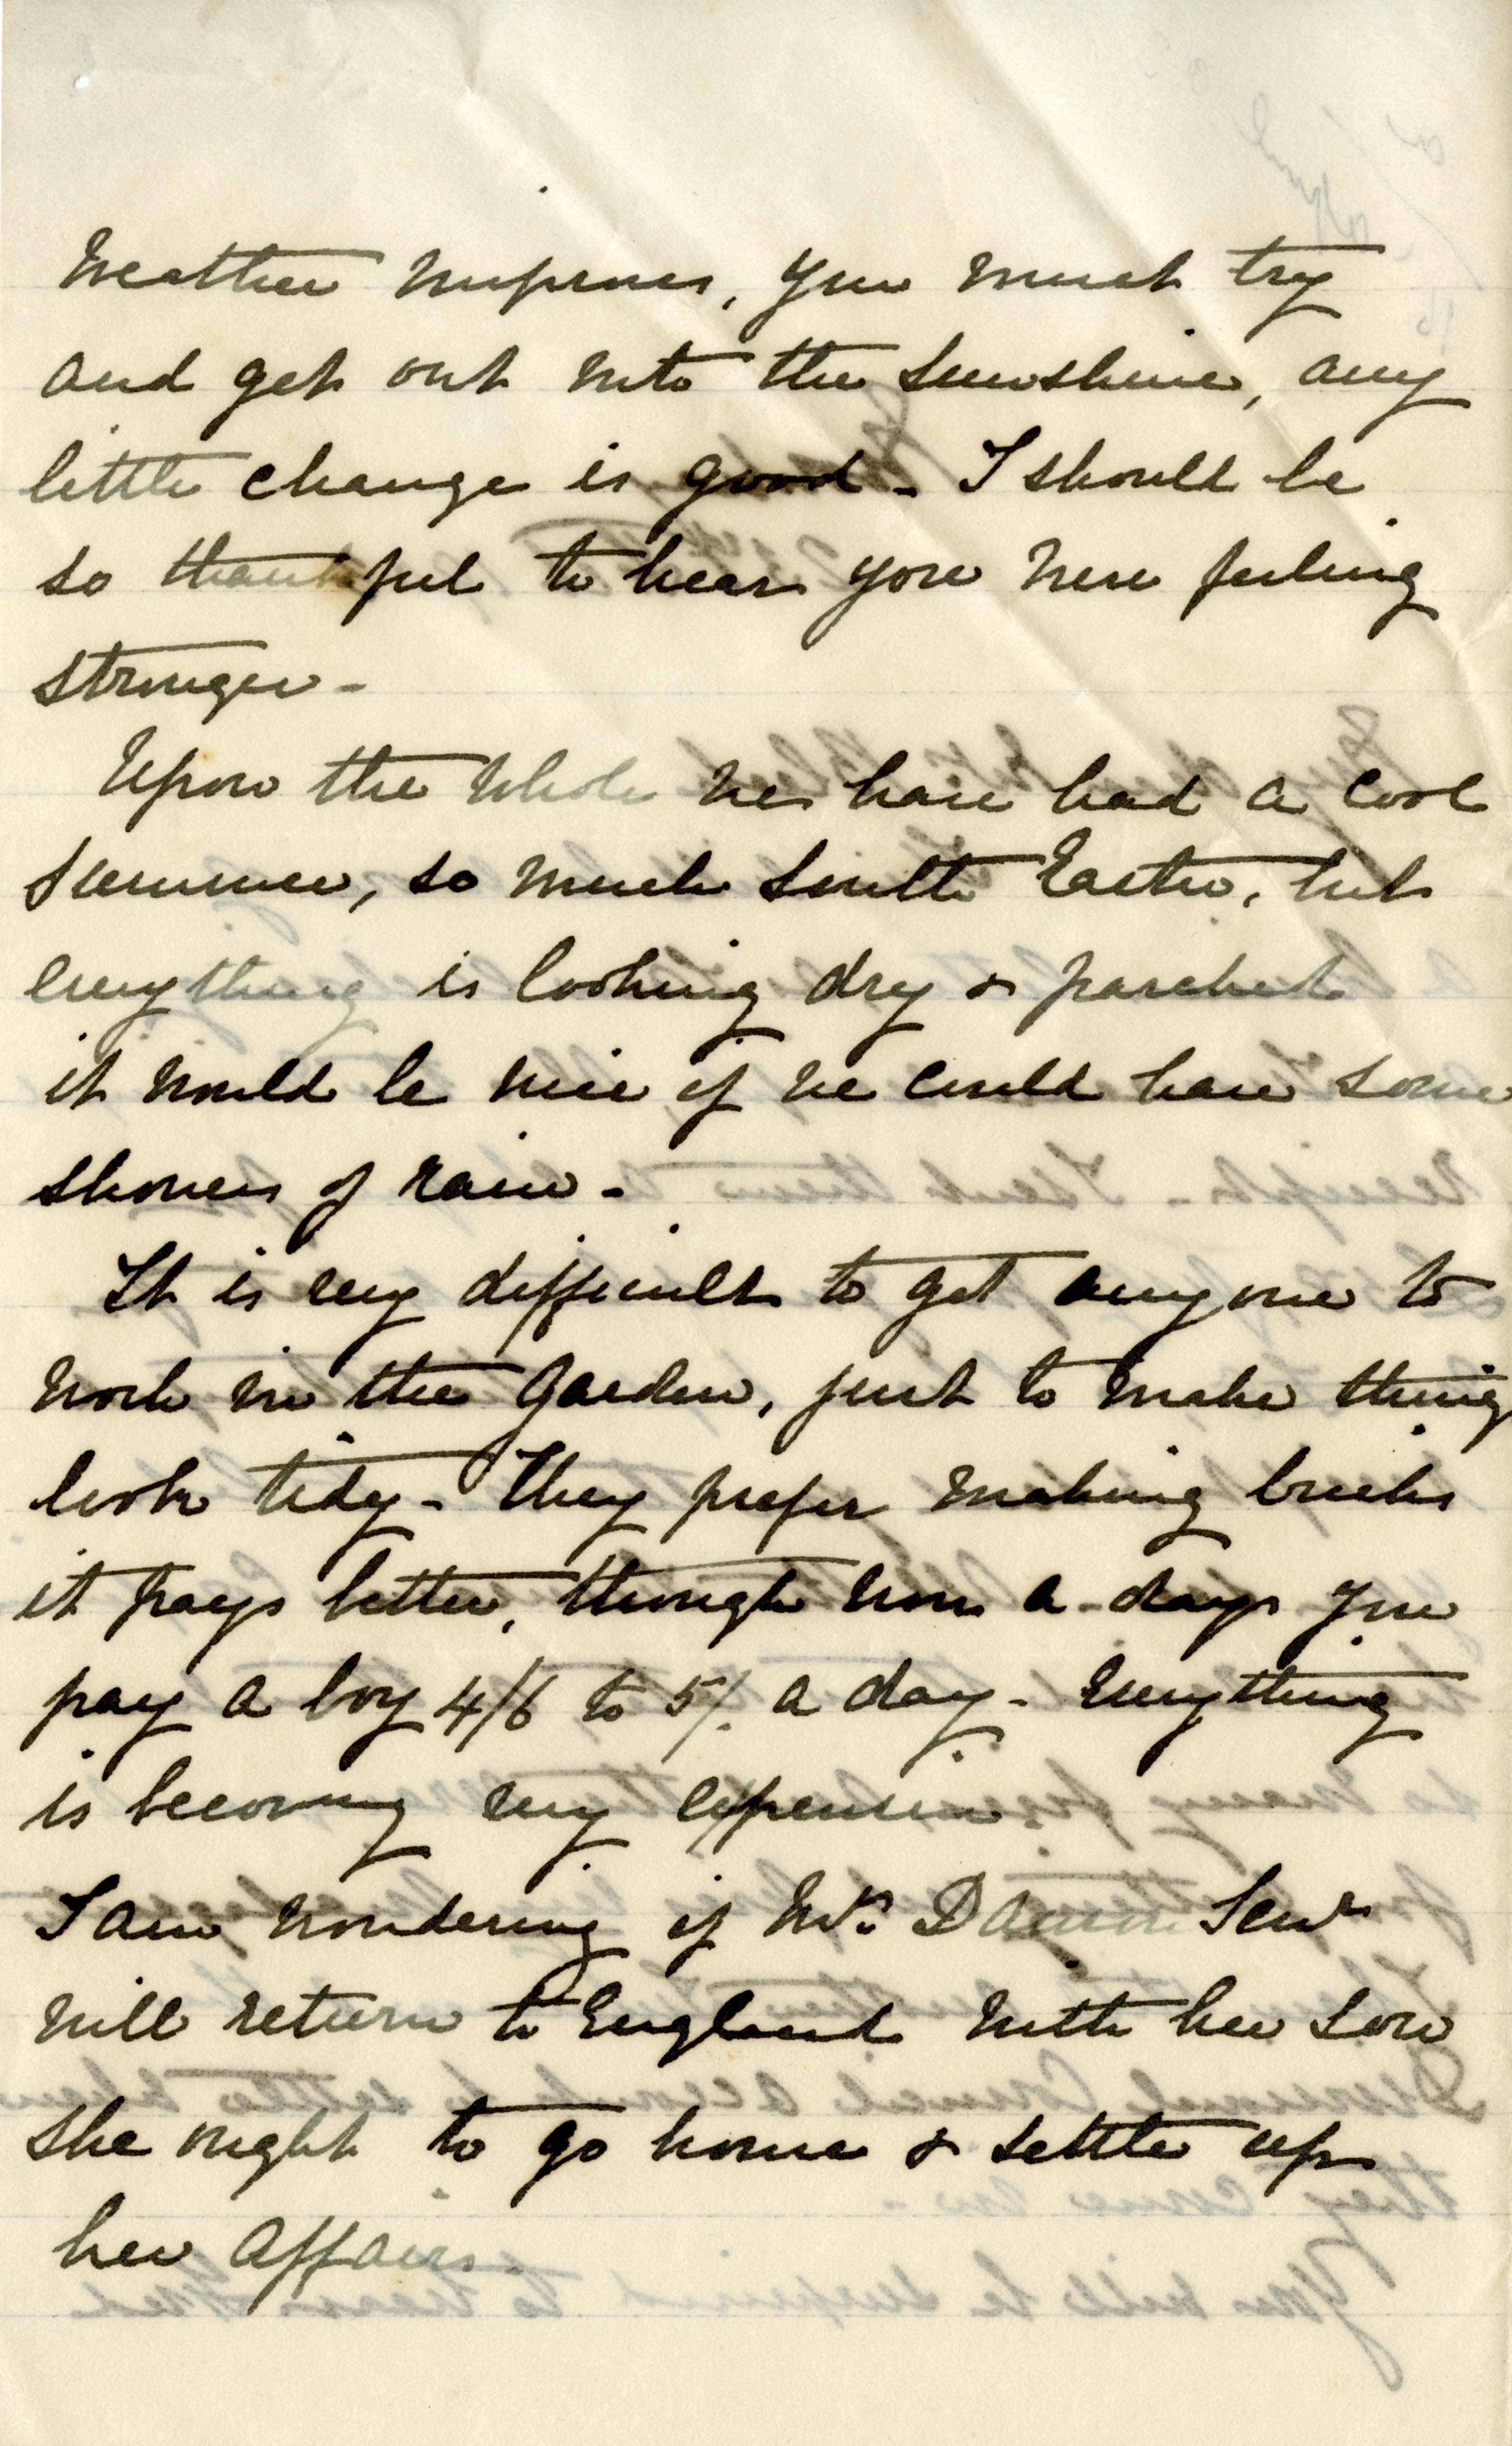 weather improves, you must try
and get out into the sunshine, any
little change is good - I should be
so thankful to hear you were feeling
stronger -
Upon the whole we have had a cool
summer, so much South Easter, but
everything is looking dry & parched
it would be nice if we could have some
showers of rain -
It is very difficult to get anyone to
work in the garden, just to make things
look tidy - They prefer making bricks
it pays better, though now a-days you
pay a boy 4/6 to 5/- a day - Everything
is becoming very expensive
I am wondering if Mrs Senr
will return to England with her son
she ought to go home & settle up
her affairs -